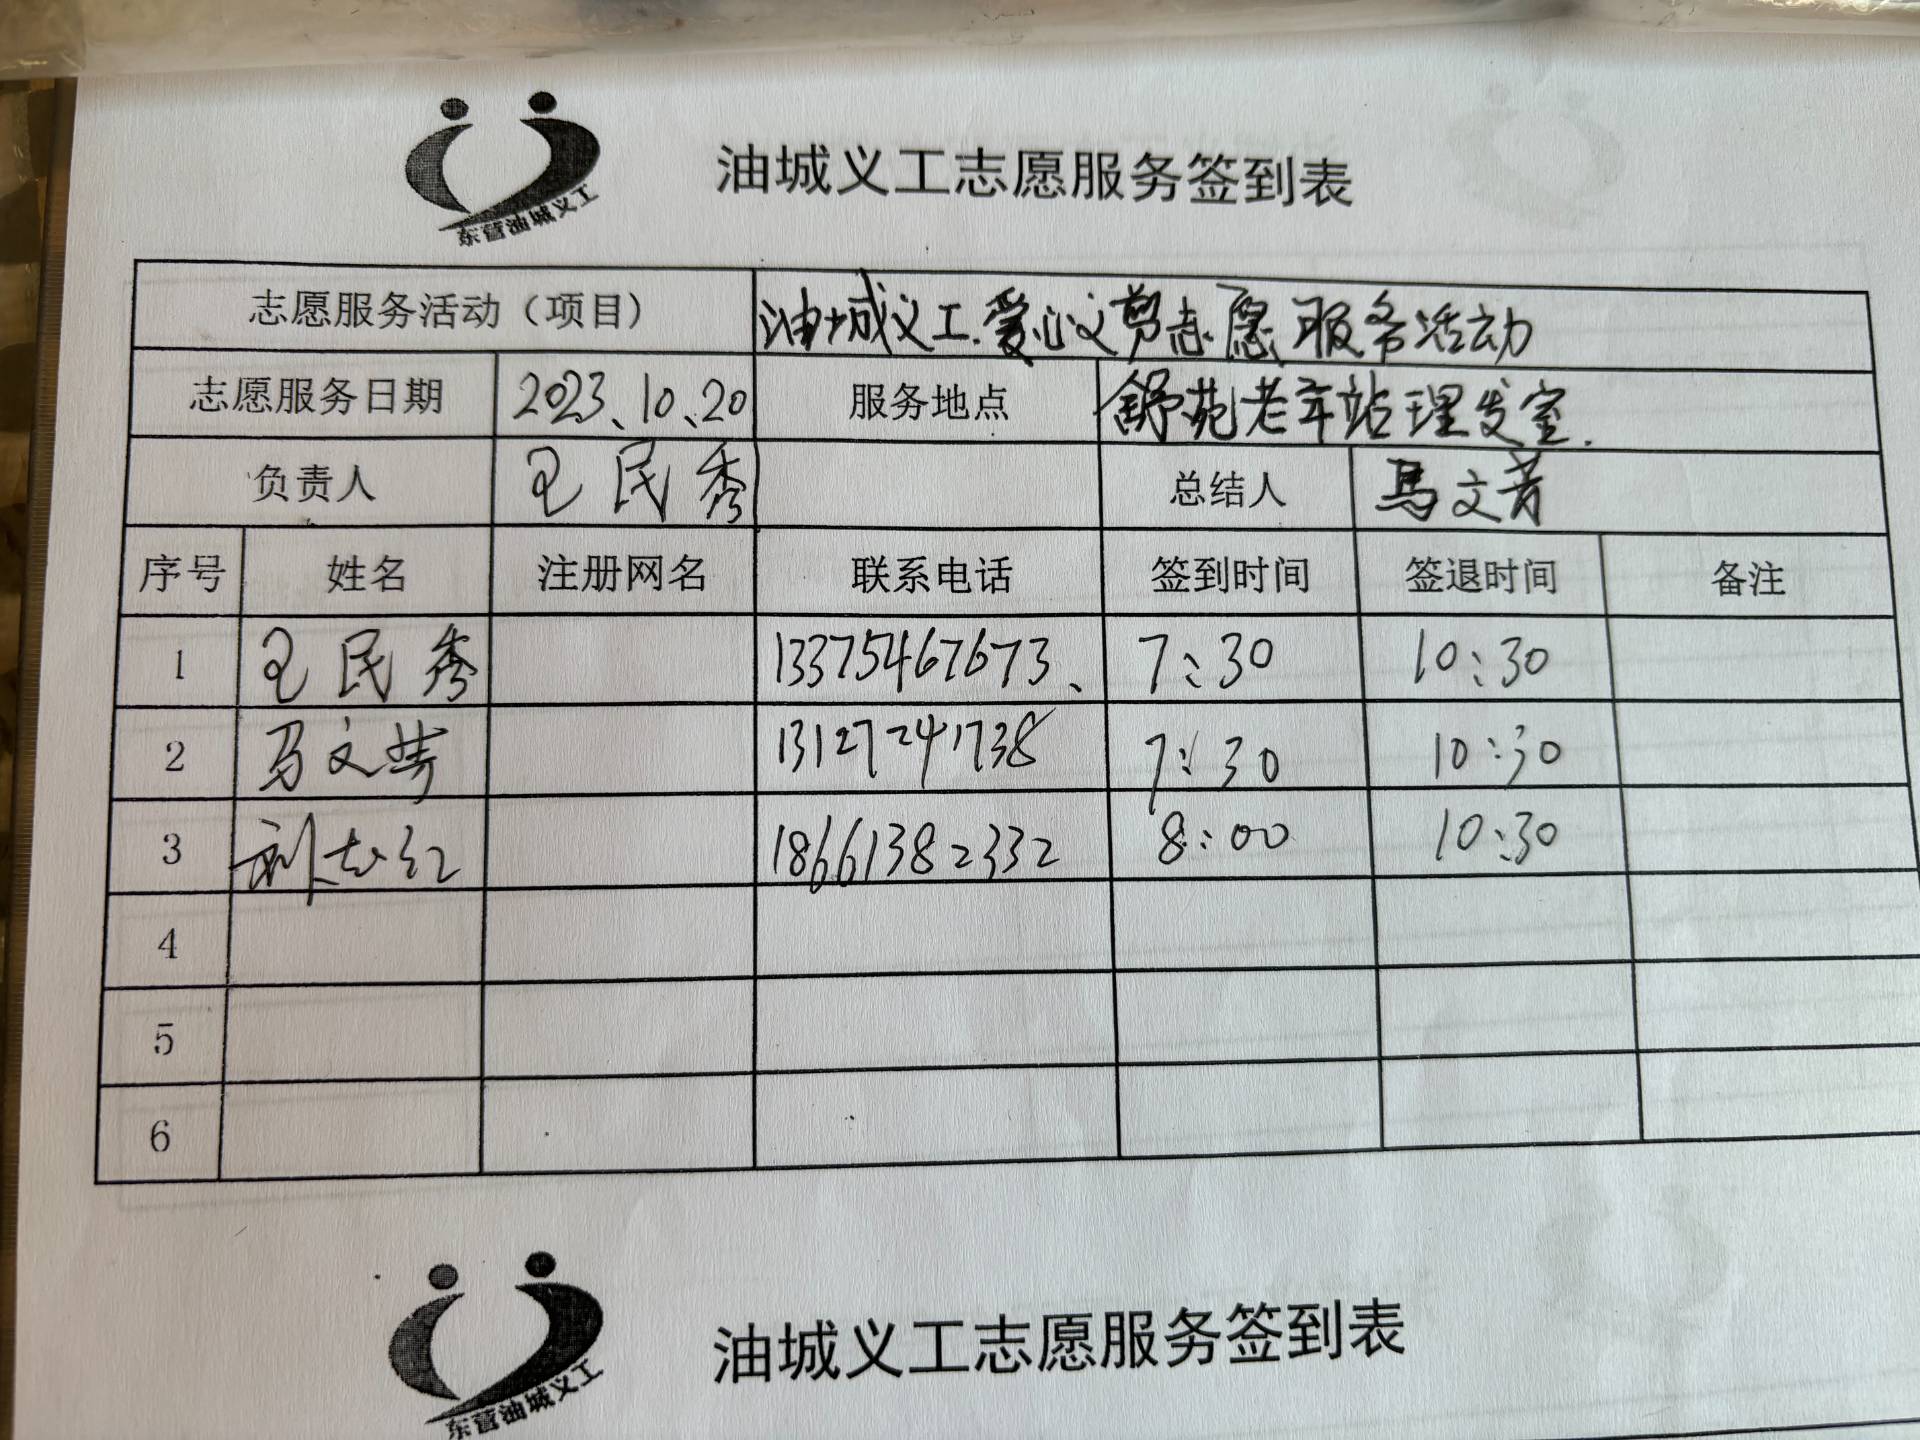 东营油城义工
油城义工志愿服务签到表
志愿服务活动（项目） 油城义工.爱心义剪志愿服务活动
志愿服务日期 2023、10、20 服务地点 舒苑老年站理发室.
负责人 王民秀 总结人 马文芳
序号 姓名 注册网名 联系电话 签到时间 签退时间 备注
1 王民秀 13375467673、 7:30 10:30
2 马文芳 13127241738 7:30 10:30
3 刘志红 18661382332 8:00 10:30
4
5
6
东营油城义工
油城义工志愿服务签到表